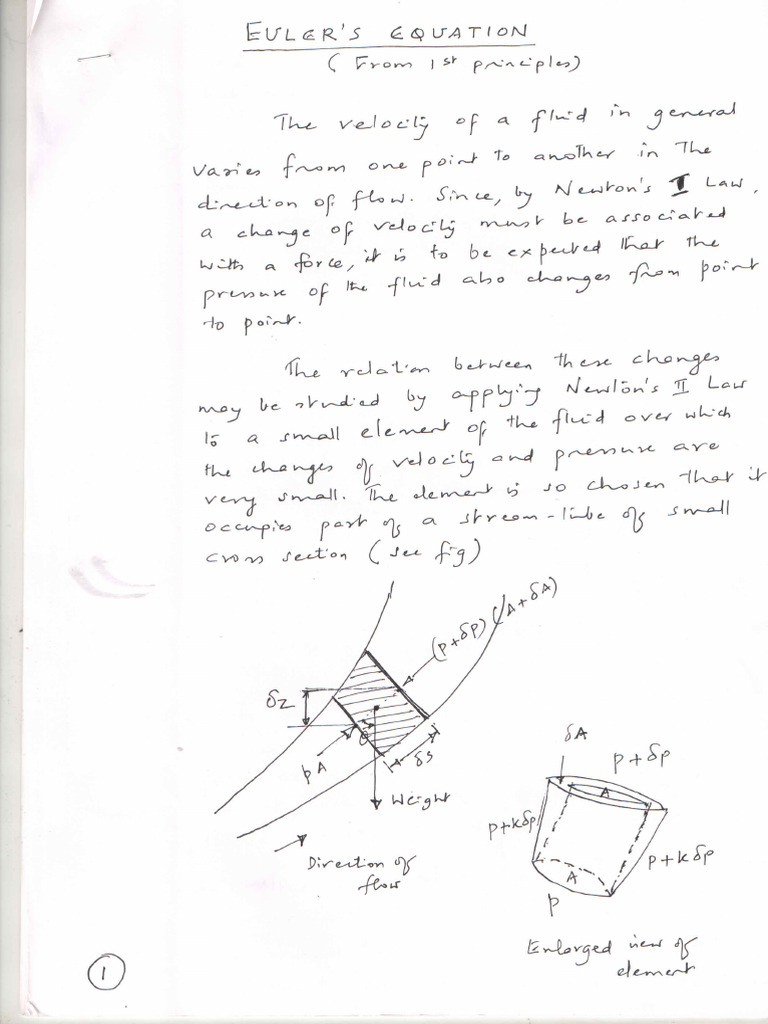 EULER'S EQUATION
(From 1st principles)
The velocity of a fluid in general
varies from one point to another in the
direction of flow. Since, by Newton's I Law,
a change of velocity must be associated
with a force, it is to be expected that the
pressure of the fluid also changes from point
to point.
The relation between these changes
may be studied by applying Newton's II Law
to a small element of the fluid over which
the changes of velocity and pressure are
very small. The element is so chosen that it
occupies part of a stream-tube of small
cross section (see fig)
(p+δp)(A+δA)
δz
θ
δs
pA
Weight
Direction of
flow
δA
p+δp
A
p+kδp
p+kδp
A
p
Enlarged view of
element
1